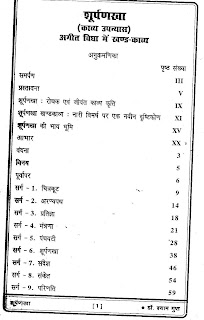 शूर्पणखा
(काव्य उपन्यास)
अगीत विधा में खण्ड-काव्य
अनुक्रमणिका
पृष्ठ संख्या
समर्पण III
प्रस्तावना V
शूर्पणखा : रोचक एवं जीवंत काव्य कृति IX
शूर्पणखा खण्डकाव्य : नारी विमर्श पर एक नवीन दृष्टिकोण XI
शूर्पणखा की भाव भूमि XV
आभार XX
वंदना 3
विनय 5
पूर्वापर 6
सर्ग - 1. चित्रकूट 9
सर्ग - 2. अरण्यपथ 14
सर्ग - 3. प्रतिज्ञा 18
सर्ग - 4. मंत्रणा 21
सर्ग - 5. पंचवटी 28
सर्ग - 6. शूर्पणखा 38
सर्ग - 7. संदेश 46
सर्ग - 8. संकेत 54
सर्ग - 9. परिणति 59
शूर्पणखा [1] डॉ. श्याम गुप्त